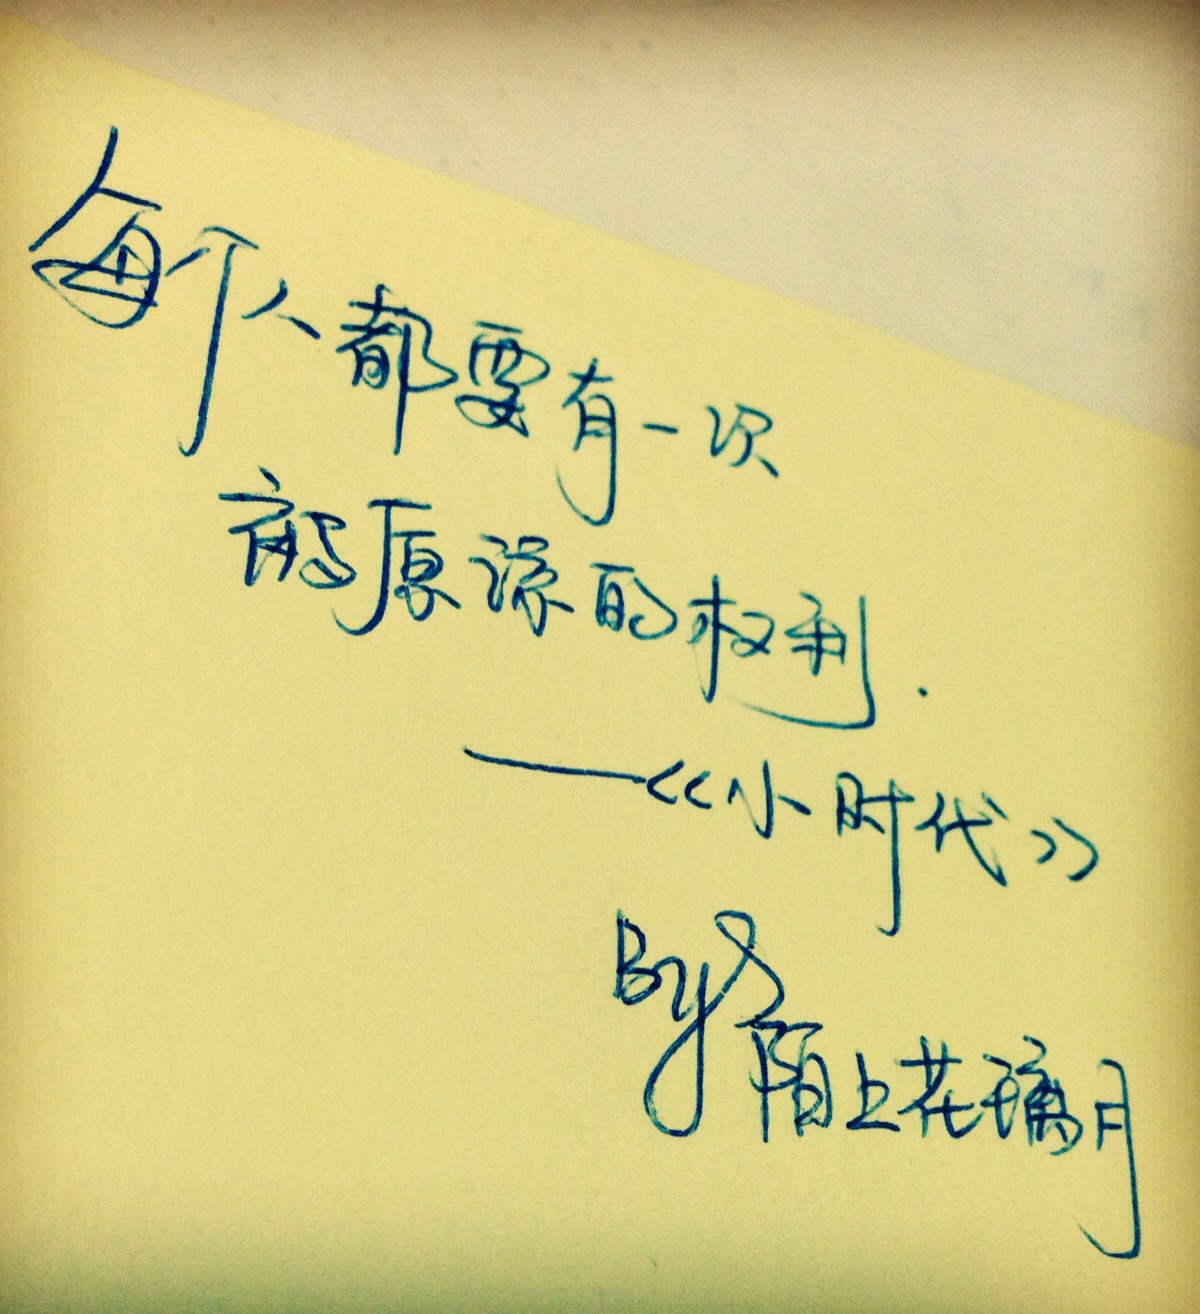 每个人都要有一次
被原谅的权利.
——《小时代》
By
陌上花璃月